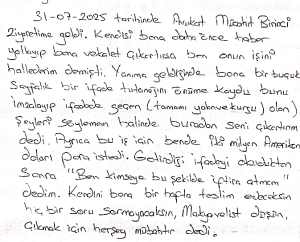 31-07-2025 tarihinde Avukat Mücahit Birinci
Ziyaretime geldi. Kendisi bana daha önce haber
yollayıp bana vekalet çıkartırsa ben onun işini
hallederim demişti. Yanıma geldiğinde bana bir buçuk
Sayfalık bir ifade tutanağını önüme koydu bunu
imzalayıp ifadede geçen (tamamı yalan ve kurgu) olan)
şeyleri söylemem halinde buradan seni çıkartırım
dedi. Ayrıca bu iş için bende iki milyon Amerikan
doları para istedi. Getirdiği ifadeyi okuduktan
sonra "Ben kimseye bu şekilde iftira atmam"
dedim. Kendini bana bir hafta teslim edeceksin
hiç bir soru sormayacaksın, Makyavelist düşün,
Çıkmak için herşey mübahtır dedi.